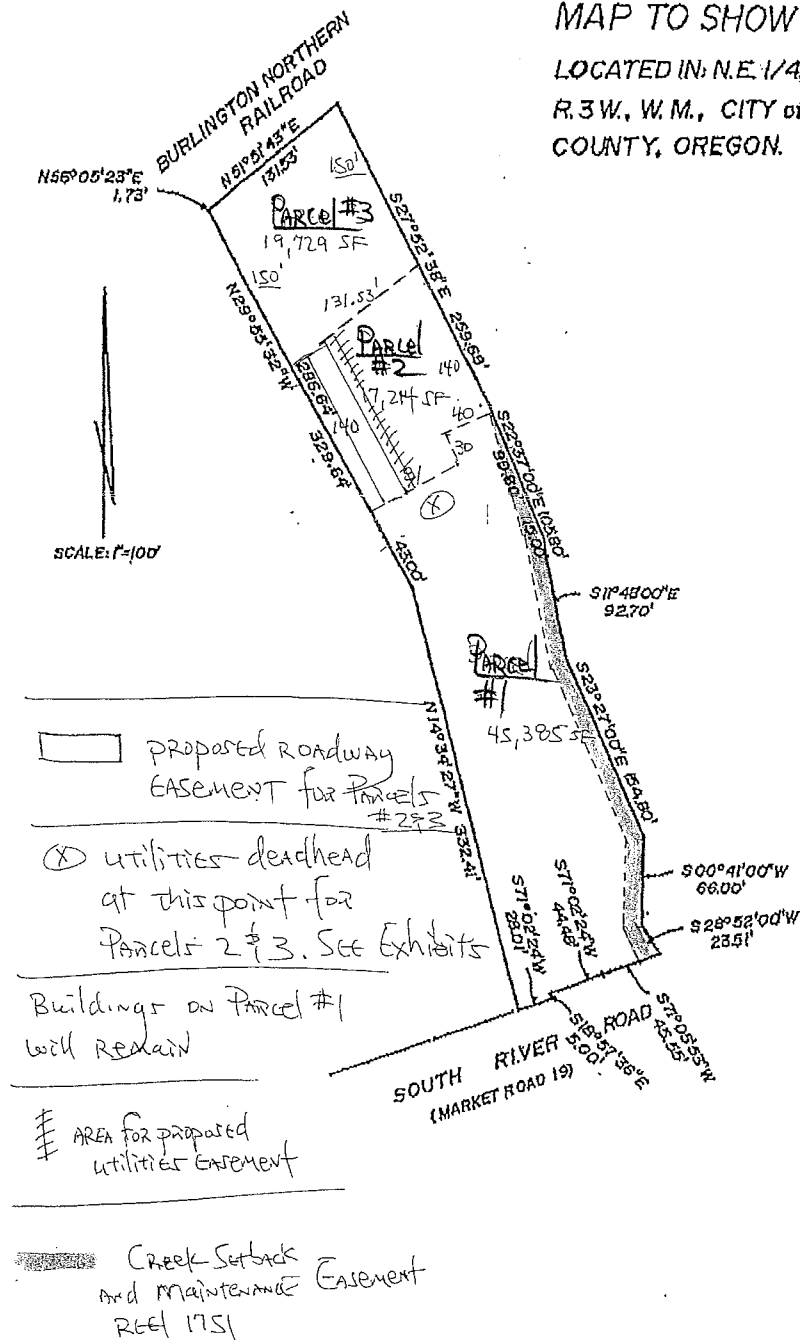 MAP TO SHOW
LOCATED IN: N.E. 1/4,
R.3W., W.M., CITY of
COUNTY, OREGON.
BURLINGTON NORTHERN
RAILROAD
N56°05'23"E
1.73'
N51°51'43"E
131.53'
150'
Parcel #3
19,729 SF
150'
S27°52'38"E 259.69'
131.53'
N29°53'32"W
329.64'
286.64'
140
Parcel
#2
140
17,214 SF
40
30
X
43.00'
S22°37'00"E 105.80'
99.80'
15.00'
SCALE: 1"=100'
S11°48'00"E
92.70'
Parcel
#1
45,385 SF
S23°27'00"E 154.80'
N14°34'27"W 332.41'
S00°41'00"W
66.00'
S28°52'00"W
23.51'
S71°02'24"W
28.01'
S71°02'24"W
44.48'
S18°57'36"E
5.00'
S71°05'53"W
45.55'
SOUTH RIVER ROAD
(MARKET ROAD 19)
proposed Roadway
Easement for Parcels
#2&3
X utilities deadhead
at this point for
Parcels 2 & 3. See Exhibits
Buildings on Parcel #1
will Remain
Area for proposed
utilities Easement
Creek Setback
and Maintenance Easement
Reel 1751